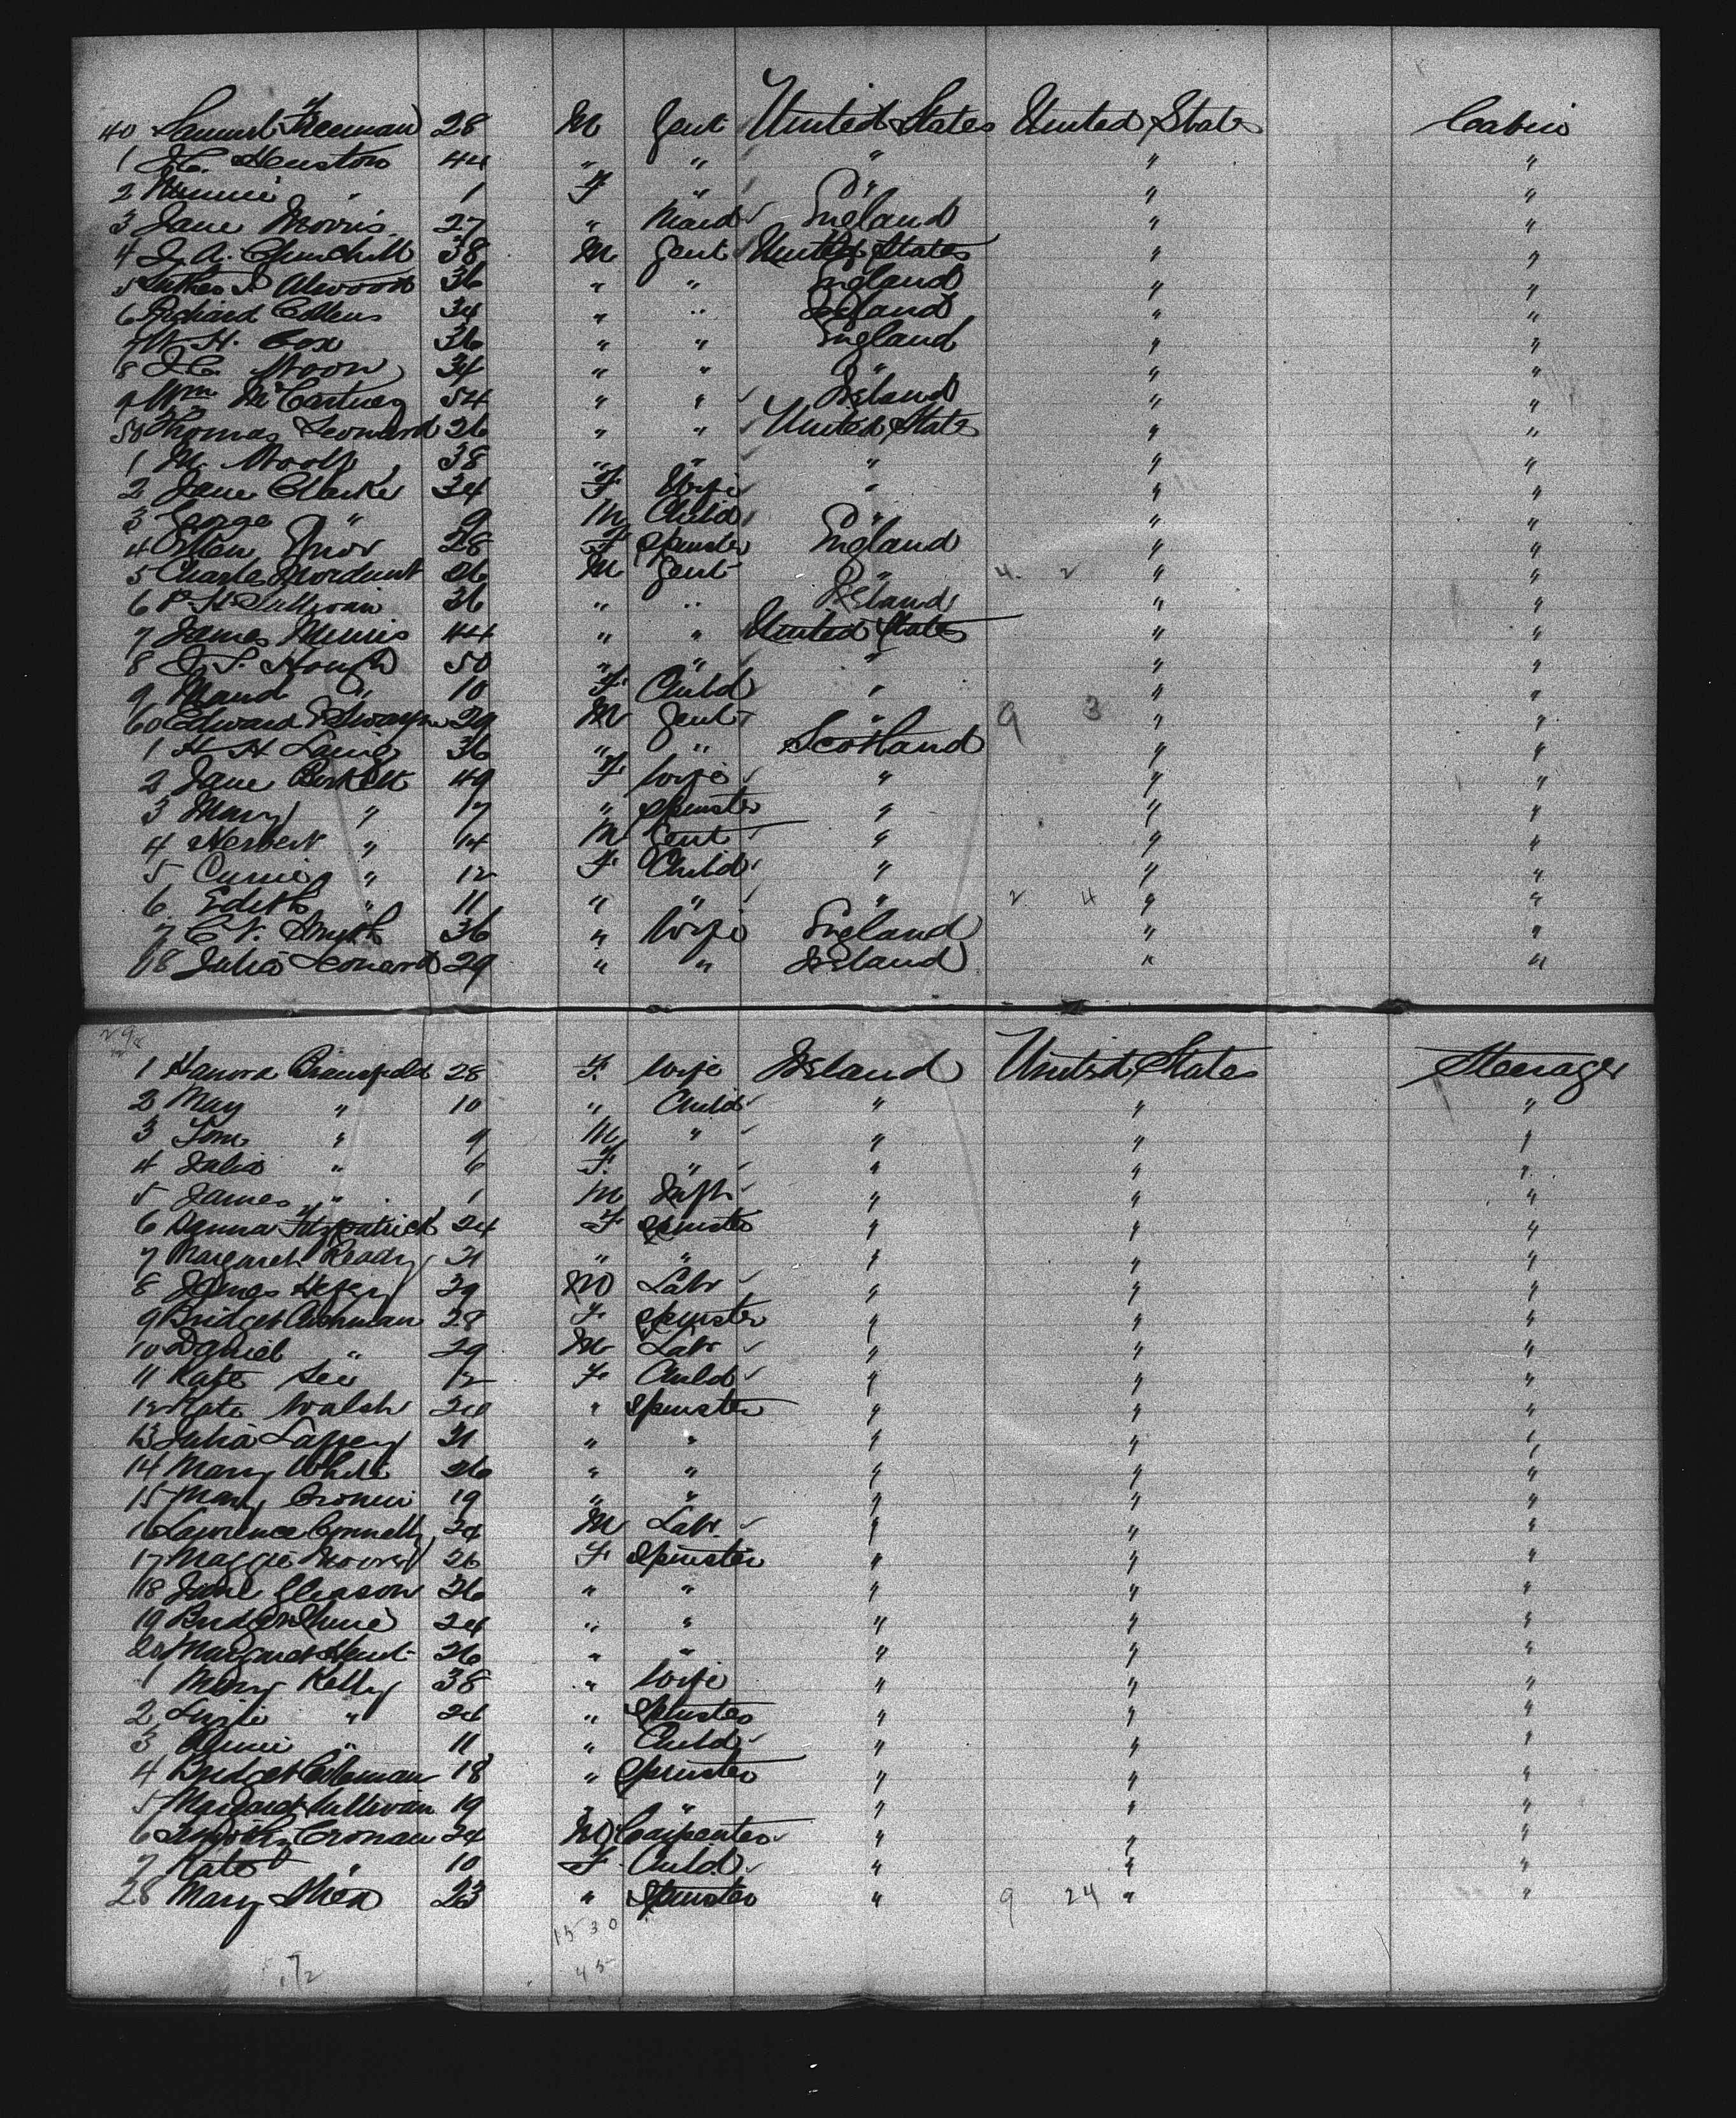 40 Samuel Freeman 28 M Gent United States United States Cabin
1 J.C. Heuston 44 " " " " "
2 Minnie " 1 F " " " "
3 Jane Morris 27 " Maid England " "
4 J. A. Churchill 38 M Gent United States " "
5 Luther S. Atwood 36 " " England " "
6 Richard Collens 34 " " Ireland " "
7 W. H. Cox 36 " " England " "
8 J.C. Moon 34 " " " " "
9 Wm McCartney 54 " " Ireland " "
50 Thomas Leonard 26 " " United States " "
1 M. Woolf 38 " " " " "
2 Jane Clarke 34 F Wife " " "
3 George " 9 M Child " " "
4 Ellen 28 F Spinster England " "
5 Charles Mordunt 26 M Gent " 4. 2 " "
6 P. H. Sullivan 36 " " Ireland " "
7 James 44 " " United States " "
8 J. S. Hough 50 " " " " "
9 Maud " 10 F Child " " "
60 Edward 29 M Gent " 9 3 " "
1 H H 36 " " Scotland " "
2 Jane Birkett 49 F Wife " " "
3 Mary " 17 " Spinster " " "
4 Herbert " 14 M Gent " " "
5 " 12 F Child " " "
6 Edith " 11 " " " 2 4 " "
7 C V. Smyth 36 " Wife England " "
68 Julia Leonard 29 " " Ireland " "
1 Hanora 28 F. Wife Ireland United States Steerage
2 May " 10 " Child " " "
3 Tom " 9 M " " " "
4 Julia " 6 F. " " " "
5 James " 1 M Inft " " "
6 Hanna Fitzpatrick 24 F Spinster " " "
7 Margaret Ready 21 " " " " "
8 James 29 M Labr " " "
9 Bridget Cushman 28 F Spinster " " "
10 Daniel " 29 M Labr " " "
11 Kate 12 F Child " " "
12 Kate Walsh 24 " Spinster " " "
13 Julia Laffey 21 " " " " "
14 Mary White 26 " " " " "
15 Mary Cronin 19 " " " " "
16 Lawrence Connelly 24 M Labr. " " "
17 Maggie 26 F Spinster " " "
18 Jane Gleason 26 " " " " "
19 24 " " " " "
20 Margaret Hunt 26 " " " " "
1 Mary Kelly 38 " Wife " " "
2 Lizzie " 24 " Spinster " " "
3 Annie " 11 " Child " " "
4 Bridget Coleman 18 " Spinster " " "
5 Margaret Sullivan 19 " " " " "
6 Timothy Cronan 24 M Carpenter " " "
7 Kate " 10 F Child " " "
28 Mary Shea 23 " Spinster " 9 24 " "
15 30
45